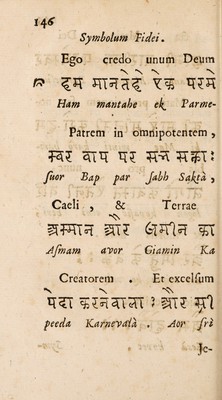 146
Symbolum Fidei.
Ego credo unum Deum
हम मानतेहे ऐक परमे
Ham mantahe ek Parme-
Patrem in omnipotentem,
स्वर बाप पर सभ सक्ता:
ſuor Bap par ſabh Saktà,
Caeli, & Terrae
अस्मान और जमीन का
Aſmam avor Giamin Ka
Creatorem. Et excelſum
पेदा करनेवाला: और स्री
peeda Karnevalà. Aor ſrì
Je-